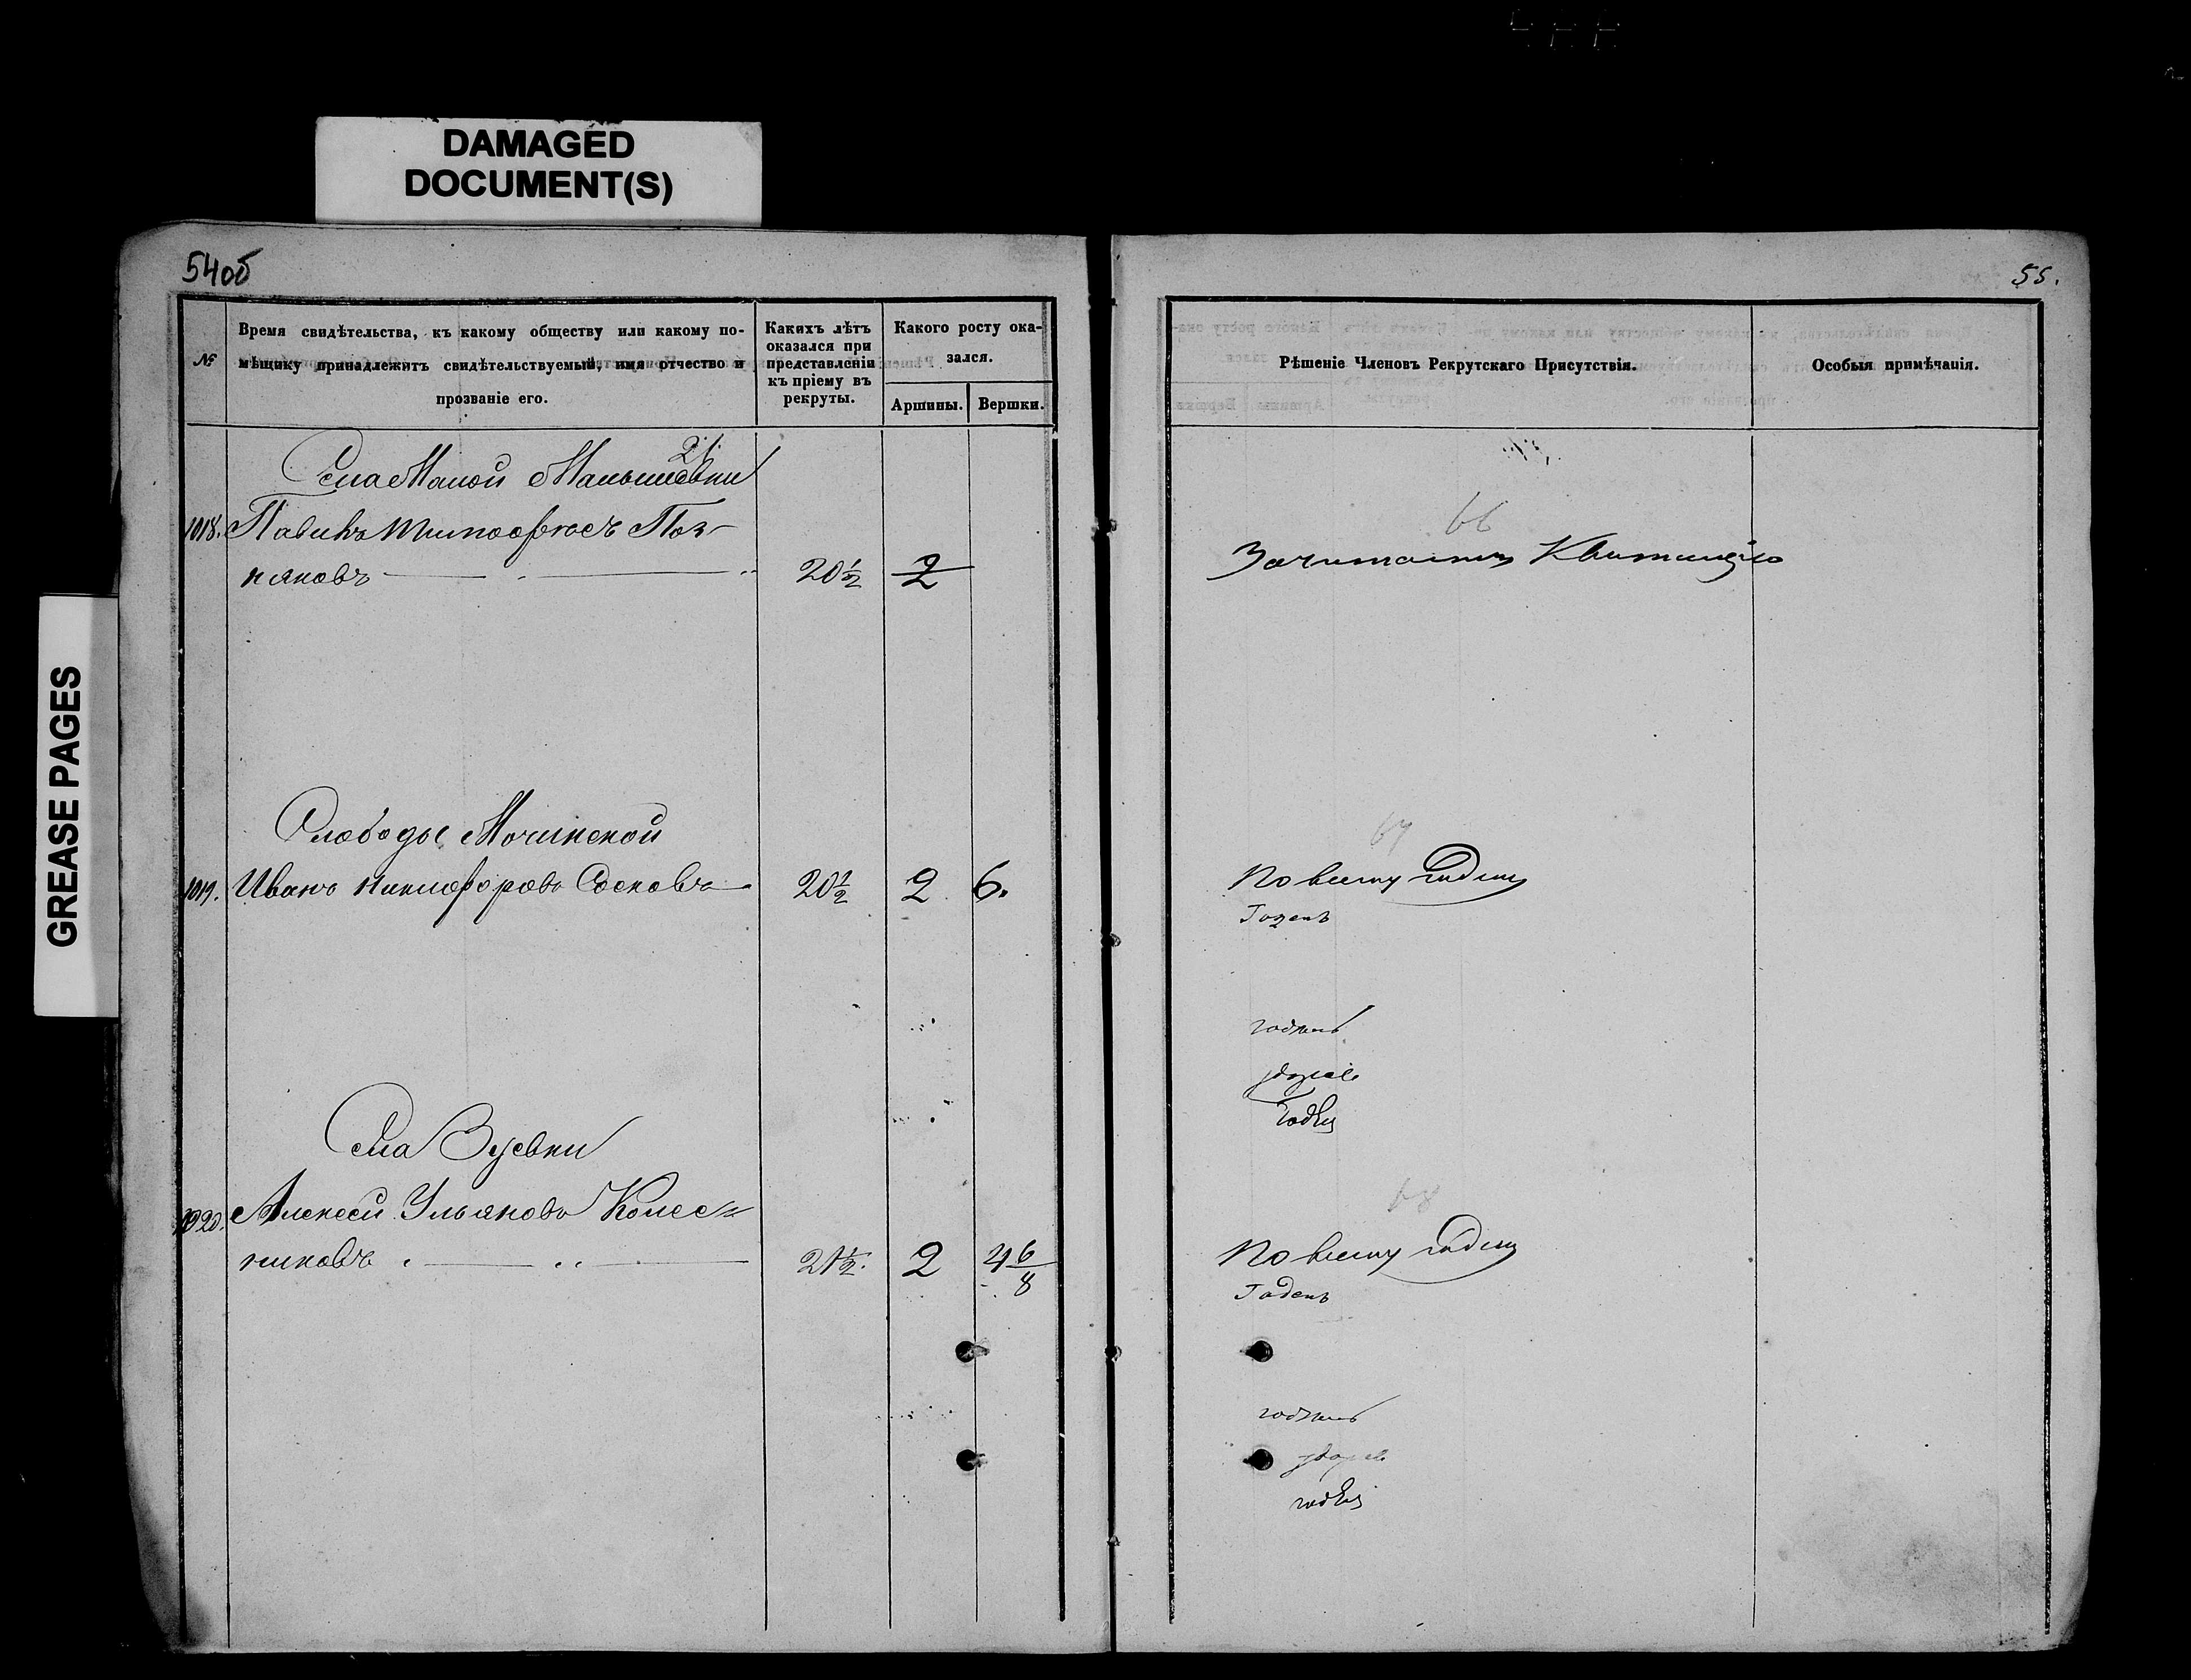 DAMAGED
DOCUMENT(S)
GREASE PAGES
54об
№
Время свидѣтельства, къ какому обществу или какому по-
мѣщику принадлежитъ свидѣтельствуемый, имя отчество и
прозваніе его.
Какихъ лѣтъ
оказался при
представленіи
къ пріему въ
рекруты.
Какого росту ока-
зался.
Аршины. Вершки.
Села Малой
1018.
няковъ 20 1/2 2
Слободы
1019. Иванъ Никифоровъ 20 1/2 2 6
Села Зуевки
1020. Алексей Ульяновъ Колес=
никовъ 21 1/2 2 4 6/8
55.
Рѣшеніе Членовъ Рекрутскаго Присутствія.
Особыя примѣчанія.
66
Квитанцію
67
По всему годенъ
Годенъ
годенъ
68
По всему годенъ
Годенъ
годенъ